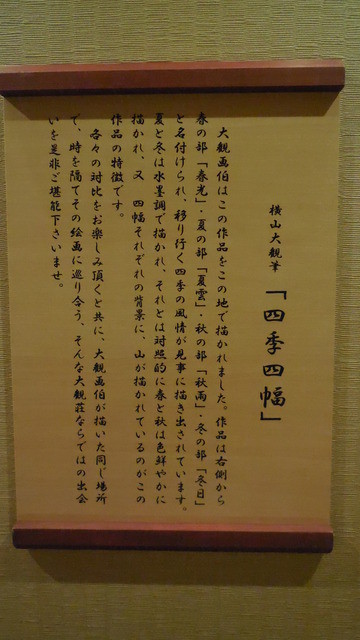 横山大観筆「四季四幅」
大観画伯はこの作品をこの地で描かれました。作品は右側から
春の部「春光」・夏の部「夏雲」・秋の部「秋雨」・冬の部「冬日」
と名付けられ、移り行く四季の風情が見事に描き出されています。
夏と冬は水墨調で描かれ、それとは対照的に春と秋は色鮮やかに
描かれ、又、四幅それぞれの背景に、山が描かれているのがこの
作品の特徴です。
各々の対比をお楽しみ頂くと共に、大観画伯が描いた同じ場所
で、時を隔てその絵画に巡り合う、そんな大観荘ならではの出会
いを是非ご堪能下さいませ。